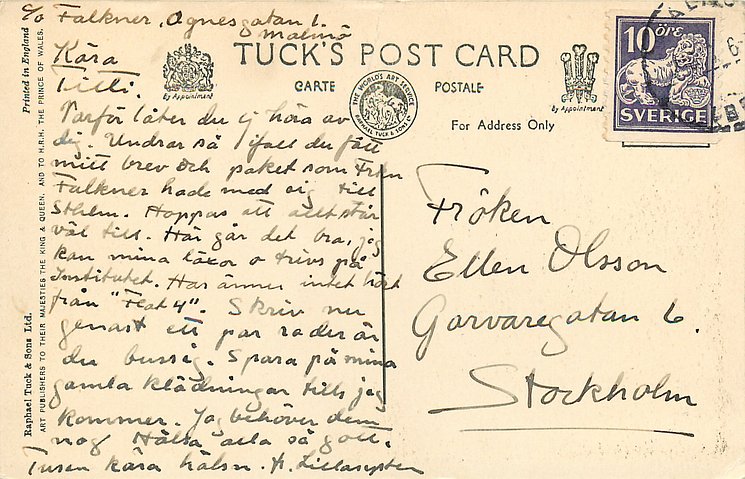 c/o Falkner, Agnesgatan 1.
Malmö
TUCK'S POST CARD
CARTE POSTALE
By Appointment
THE WORLD'S ART SERVICE
RAPHAEL TUCK & SONS LTD
By Appointment
For Address Only
10 ÖRE
SVERIGE
Kära
Titti.
Varför låter du ej höra av
dig. Undrar så ifall du fått
mitt brev och paket som Frkn
Falkner hade med sig till
Sthlm. Hoppas att allt står
väl till. Här går det bra, jag
kan mina läxor o trivs på
Institutet. Har ännu intet hört
från "Flat 4". Skriv nu
genast ett par rader är
du bussig. Spara på mina
gamla klädningar tills jag
kommer. Jag behöver dem
nog Hälsa alla så gott.
Tusen kära hälsn. fr. Lillasyster
Fröken
Ellen Olsson
Garvaregatan 6.
Stockholm
Raphael Tuck & Sons Ltd. Printed in England
ART PUBLISHERS TO THEIR MAJESTIES THE KING & QUEEN, AND TO H.R.H. THE PRINCE OF WALES.